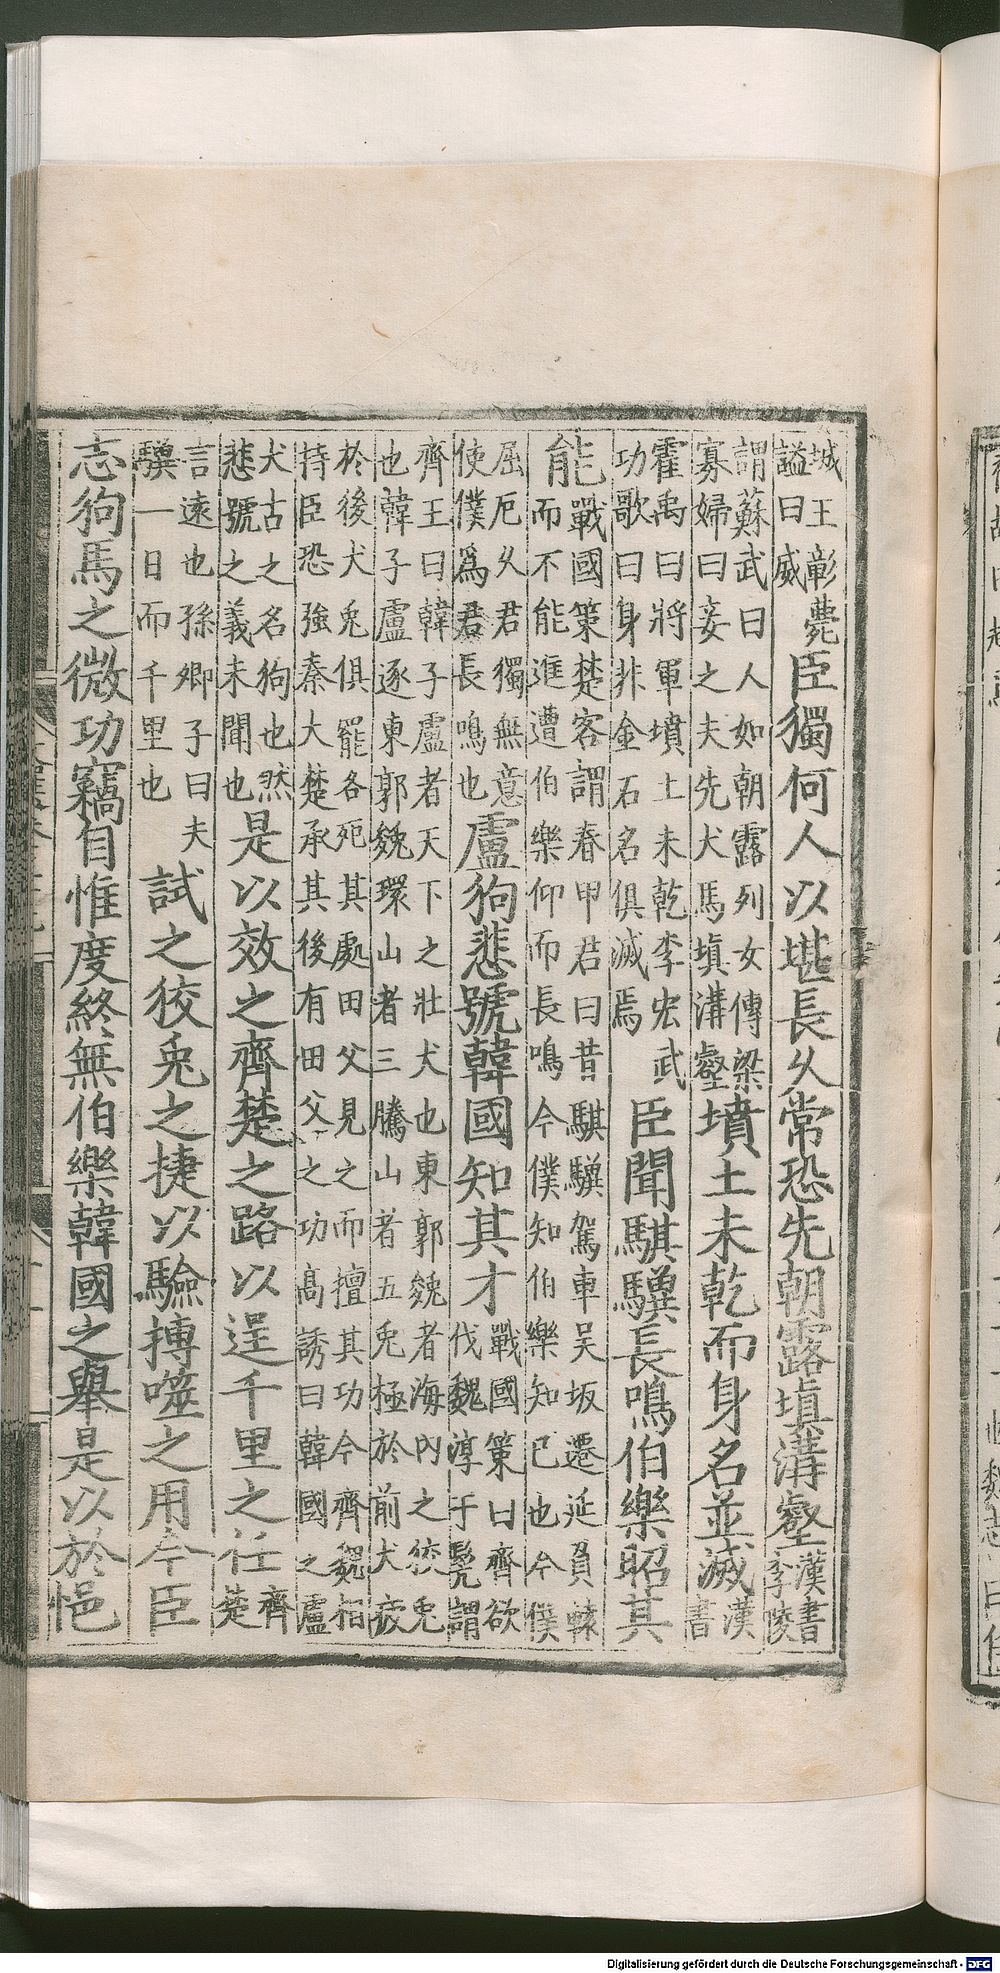 城王彰薨
諡曰威
臣獨何人以堪長久常恐先朝露填溝壑
漢書
李陵
謂蘇武曰人如朝露列女傳梁
寡婦曰妾之夫先犬馬填溝壑
墳土未乾而身名並滅
漢
書
霍禹曰將軍墳土未乾李宏武
功歌曰身非金石名俱滅焉
臣聞騏驥長鳴伯樂昭其
能
戰國策楚客謂春甲君曰昔騏驥駕車吴坂遷延負轅
而不能進遭伯樂仰而長鳴今僕知伯樂知已也今僕
屈厄久君獨無意
使僕爲君長鳴也
盧狗悲號韓國知其才
戰國策曰齊欲
伐魏淳于髡謂
齊王曰韓子盧者天下之壯犬也東郭魏者海內之狡兎
也韓子盧逐東郭魏環山者三騰山者五兎極於前犬疲
於後犬兎俱罷各死其處田父見之而擅其功今齊魏相
持臣恐強秦大楚承其後有田父之功高誘曰韓國之盧
犬古之名狗也然
悲號之義未聞也
是以效之齊楚之路以逞千里之任
齊
楚
言遠也孫卿子曰夫
驥一日而千里也
試之狡兎之捷以驗摶噬之用今臣
志狗馬之微功竊自惟度終無伯樂韓國之舉是以於悒
Digitalisierung gefördert durch die Deutsche Forschungsgemeinschaft - DFG